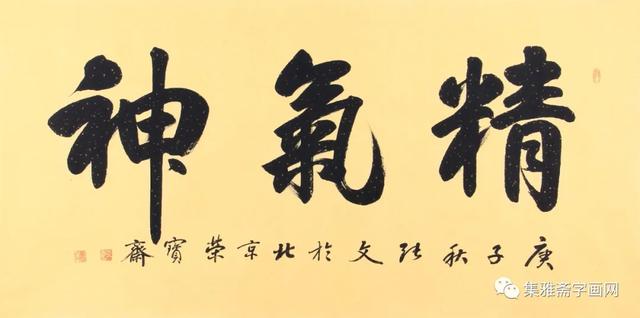 精氣神
庚子秋张文於北京荣寶齋
集雅斋字画网